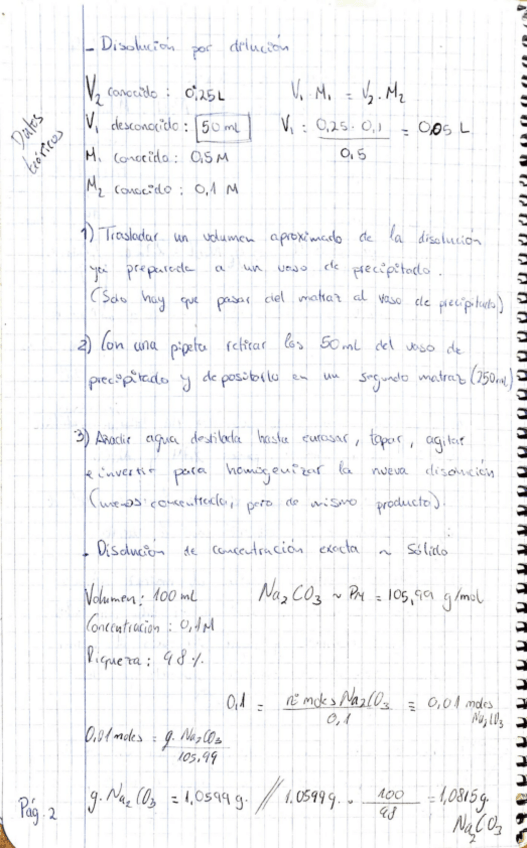 - Disolución por dilución
Datos teóricos
V₂ conocido : 0'25L
V₁ · M₁ = V₂ · M₂
V₁ desconocido : 50 mL
V₁ : 0,25 · 0,1 / 0,5 = 0,05 L
M₁ conocido : 0,5 M
M₂ conocido : 0,1 M
1) Trasladar un volumen aproximado de la disolución
ya preparada a un vaso de precipitado.
(Solo hay que pasar del matraz al vaso de precipitado)
2) Con una pipeta retirar los 50 mL del vaso de
precipitado y depositarlo en un segundo matraz (250 mL)
3) Añadir agua destilada hasta enrasar, tapar, agitar
e invertir para homogenizar la nueva disolución
(menos concentrada, pero de mismo producto).
- Disolución de concentración exacta ~ Sólido
Volumen : 100 mL
Na₂CO₃ ~ PM = 105,99 g/mol
Concentración : 0,1M
Riqueza : 98 %
0,1 = nº moles Na₂CO₃ / 0,1 = 0,01 moles Na₂CO₃
0,01 moles = g. Na₂CO₃ / 105,99
g. Na₂CO₃ = 1,0599 g. // 1,0599 g · 100 / 98 = 1,0815 g. Na₂CO₃
Pág. 2